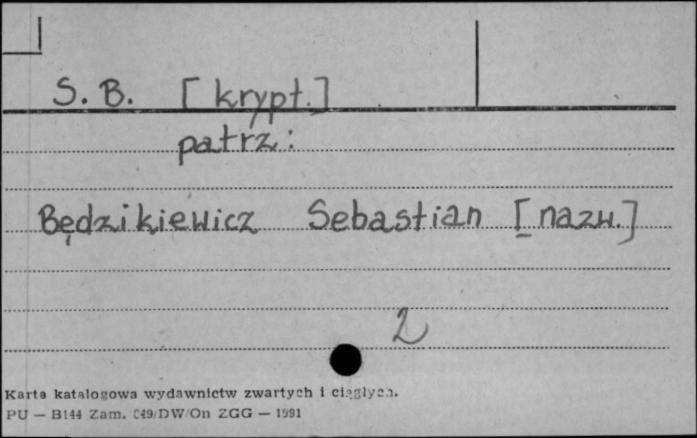 S. B. [krypt.]
patrz:
Będzikiewicz Sebastian [nazw.]
2
Karta katalogowa wydawnictw zwartych i ciągłych.
PU — B144 Zam. 249/DW/On ZGG — 1991